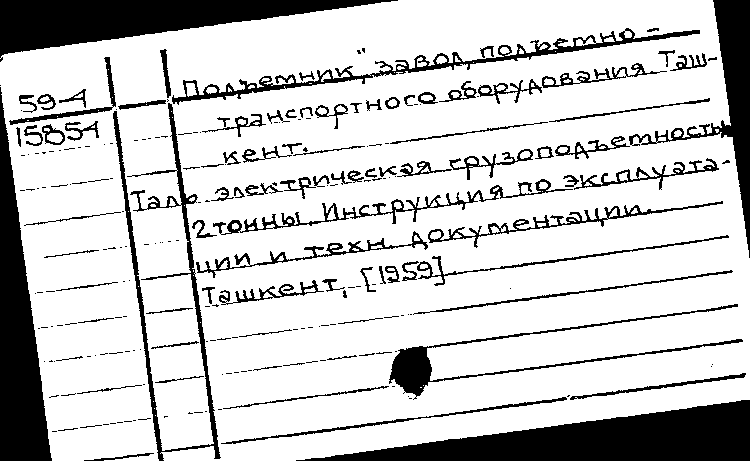 59-4
15854
Подъемник", завод, подъемно-
транспортного оборудования. Таш-
кент.
Таль электрическая грузоподъемностью
2 тонны. Инструкция по эксплуата-
ции и техн. документации.
Ташкент, [1959].